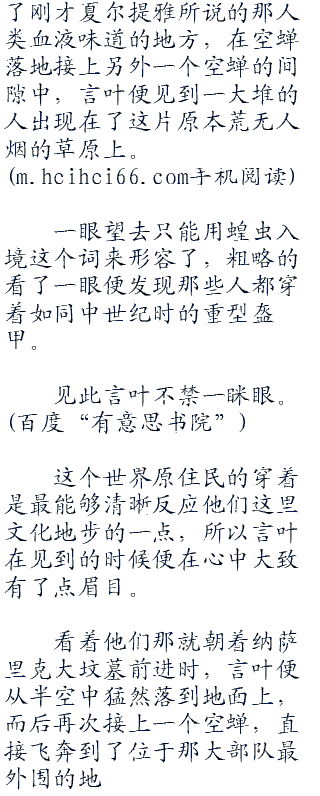 了刚才夏尔提雅所说的那人
类血液味道的地方，在空蝉
落地接上另外一个空蝉的间
隙中，言叶便见到一大堆的
人出现在了这片原本荒无人
烟的草原上。
(m.hcihci66.com手机阅读)
一眼望去只能用蝗虫入
境这个词来形容了，粗略的
看了一眼便发现那些人都穿
着如同中世纪时的重型盔
甲。
见此言叶不禁一眯眼。
(百度“有意思书院”)
这个世界原住民的穿着
是最能够清晰反应他们这里
文化地步的一点，所以言叶
在见到的时候便在心中大致
有了点眉目。
看着他们那就朝着纳萨
里克大坟墓前进时，言叶便
从半空中猛然落到地面上，
而后再次接上一个空蝉，直
接飞奔到了位于那大部队最
外围的地